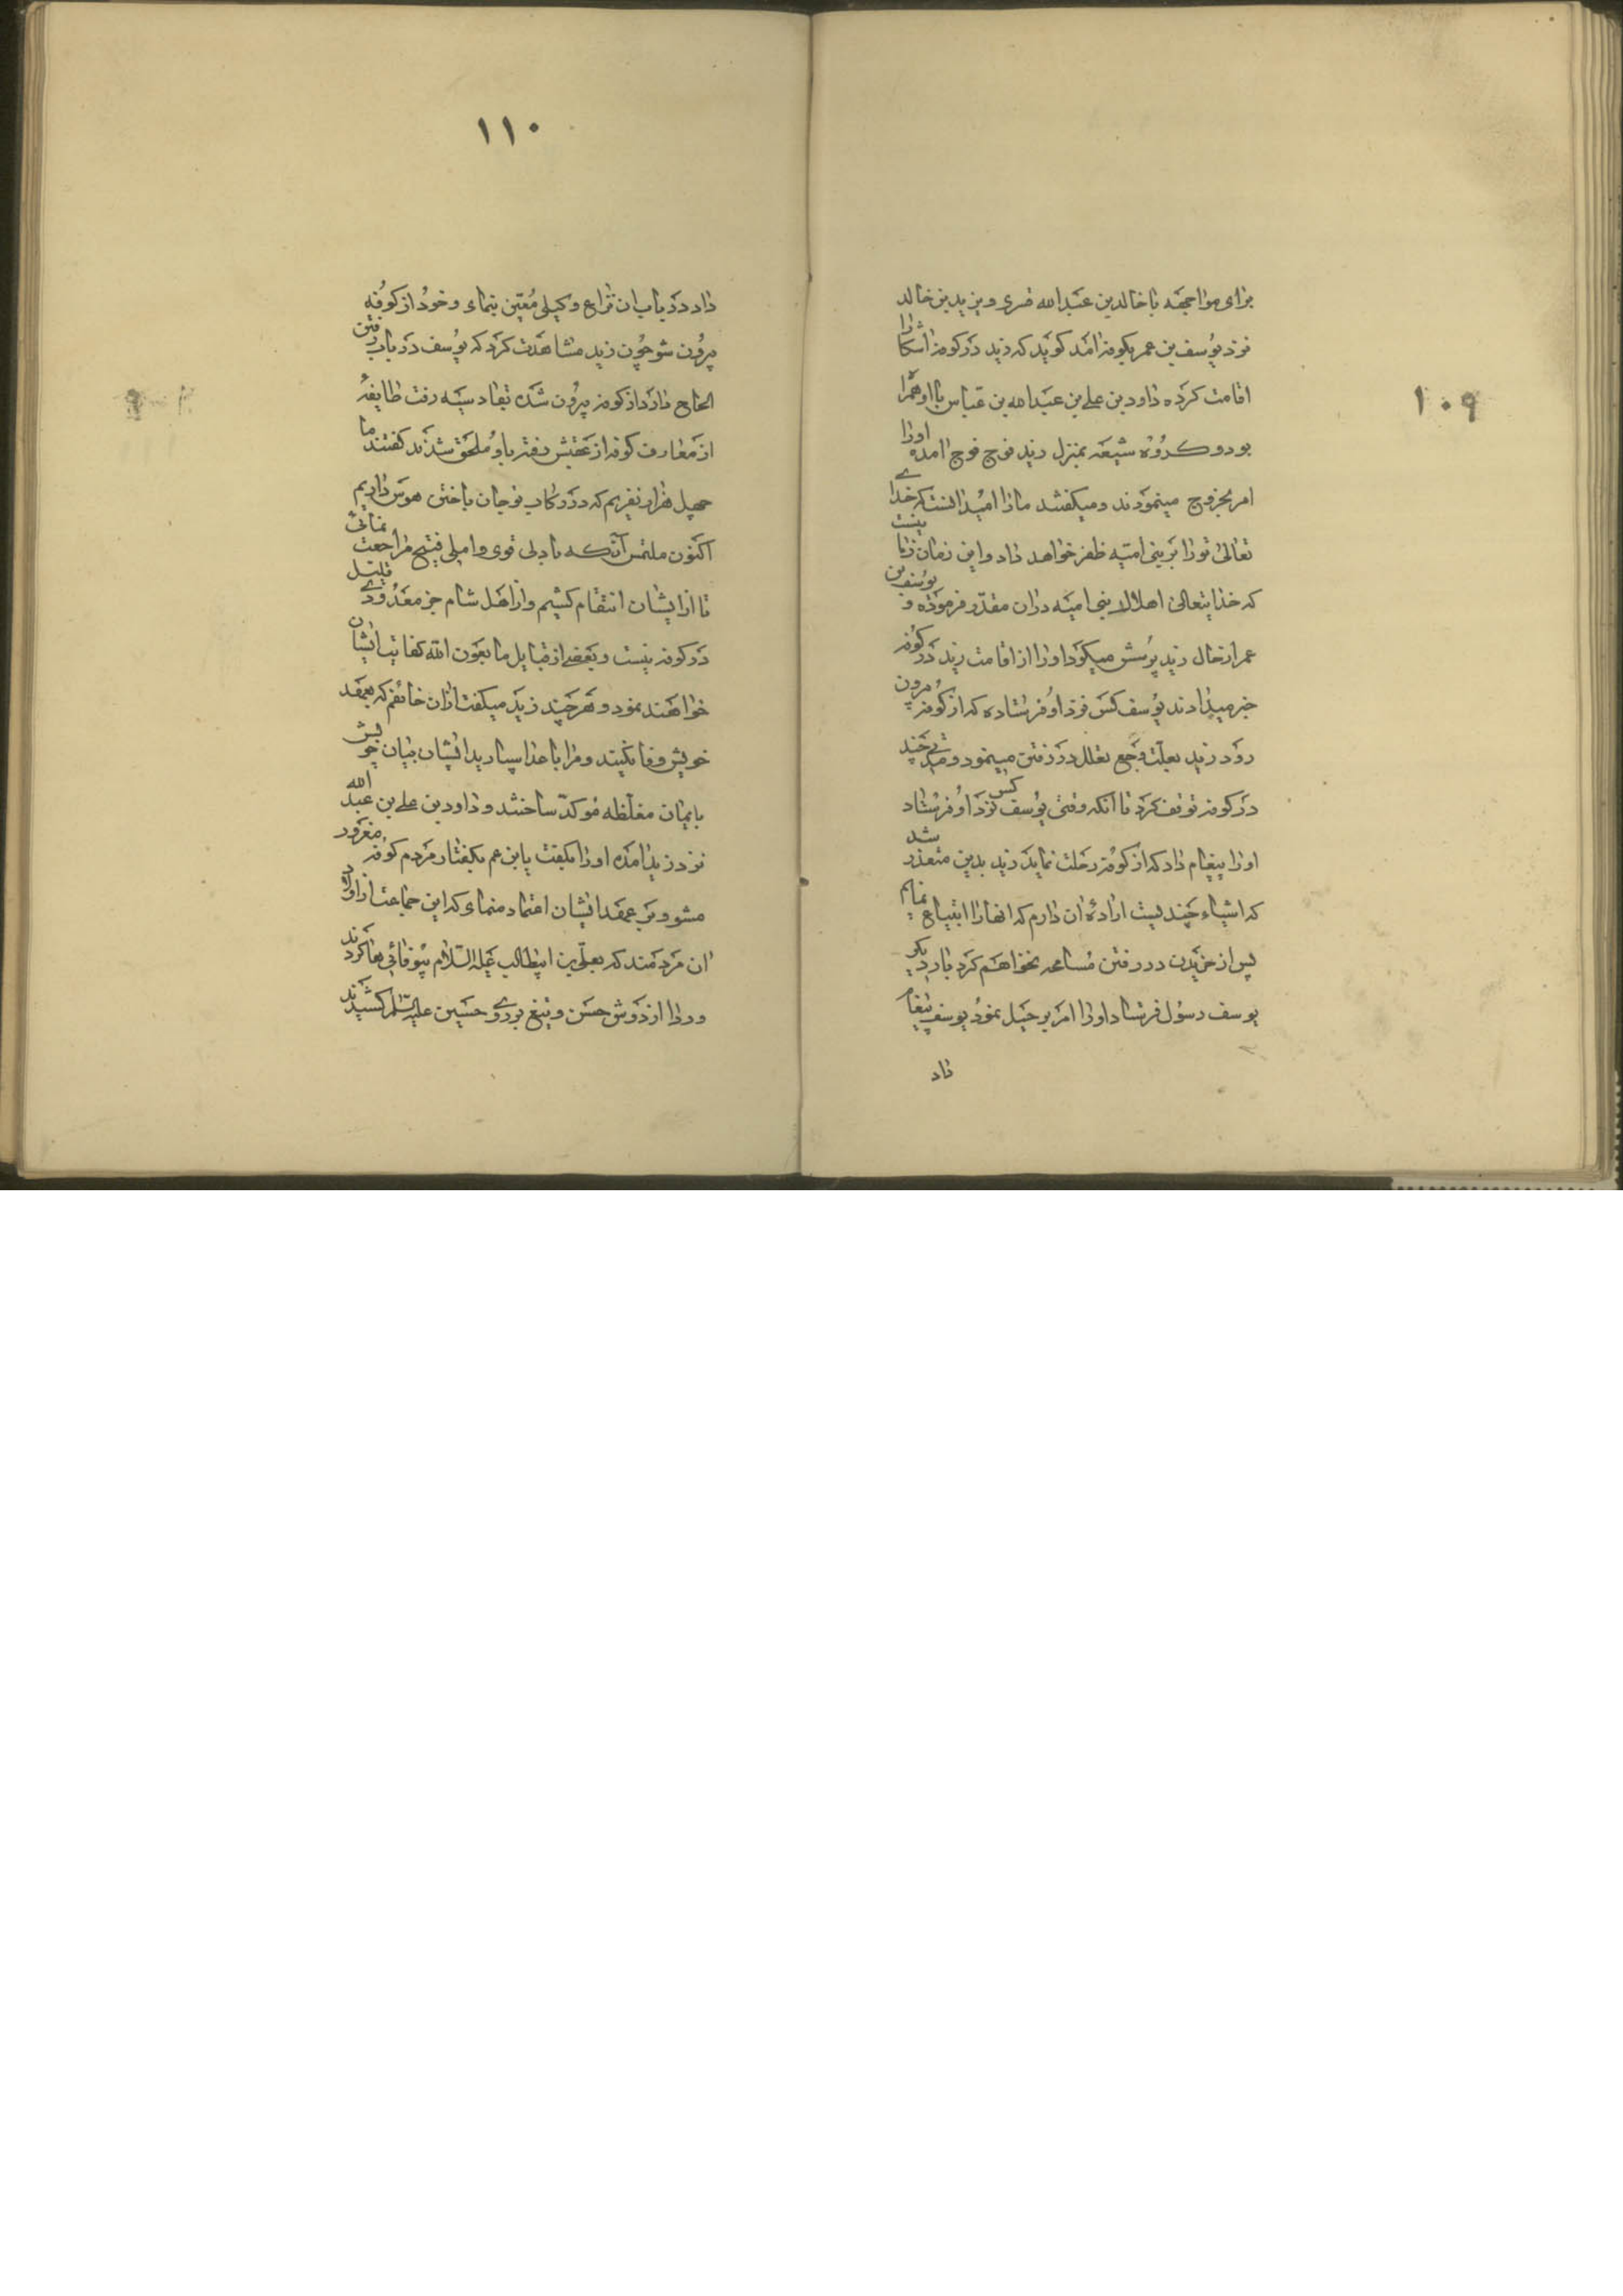 ۱۰۹
برای مواجهه با خالد بن عبدالله قسری و یزید بن خالد
نزد یوسف بن عمر بکوفه امد کوید که زید در کوفه اشکارا
اقامت کرده داود بن علی بن عبدالله بن عباس با او همراه
بود و کروه شیعه بمنزل زید فوج فوج امده اورا
امر بخروج مینمودند و میکفتند مارا امید انست که خدای
تعالی تورا بر بنی امیه ظفر خواهد داد و این زمان زمانیست
که خدایتعالی اهلاک بنی امیه دران مقدر فرموده و یوسف بن
عمر از حال زید پرسش میکرد اورا از اقامت زید در کوفه
خبر میدادند یوسف کس نزد او فرستاده که از کوفه بیرون
رود زید بعلت وجع تعلل در رفتن مینمود و مدتی چند
در کوفه توقف کرد تا انکه وقتی یوسف کس نزد او فرستاد
اورا پیغام داد که از کوفه رحلت نماید زید بدین متعذر شد
که اشیاء چندیست اراده ان دارم که انهارا ابتیاع نمایم
پس از خریدن در رفتن مسامحه نخواهم کرد بار دیکر
یوسف رسول فرستاد اورا امر برحیل نمود یوسف پیغام
داد
۱۱۰
داد در باب ان نزاع وکیلی معین بنمای و خود از کوفه
بیرون شو چون زید مشاهدت کرد که یوسف در باب رفتن
الحاح دارد از کوفه بیرون شده بقادسیه رفت طایفهٔ
از معارف کوفه از عقبش رفته باو ملحق شدند کفتند ما
چهل هزار نفریم که در رکاب تو جان باختن هوس داریم
اکنون ملتمس آنکه با دلی قوی و املی فسیح مراجعت نمائی
تا از ایشان انتقام کشیم و از اهل شام جز معدودی قلیل
در کوفه نیست و بعضی از قبایل ما بعون الله کفایت ایشان
خواهند نمود و هر چند زید میکفت ازان خائفم که بعهد
خویش وفا نکنید و مرا باعدا سپارید ایشان بیان خویش
بایمان مغلظه موکد ساختند و داود بن علی بن عبد الله
نزد زید امده اورا بکفت یابن عم بکفتار مردم کوفه مغرور
مشو و بر عهد ایشان اعتماد منمای که این جماعت از اولاد
ان مردمند که بعلی بن ابیطالب علیه السلام بیوفائی ها کردند
و ردا از دوش حسن و تیغ بروی حسین علیه السلام کشیدند